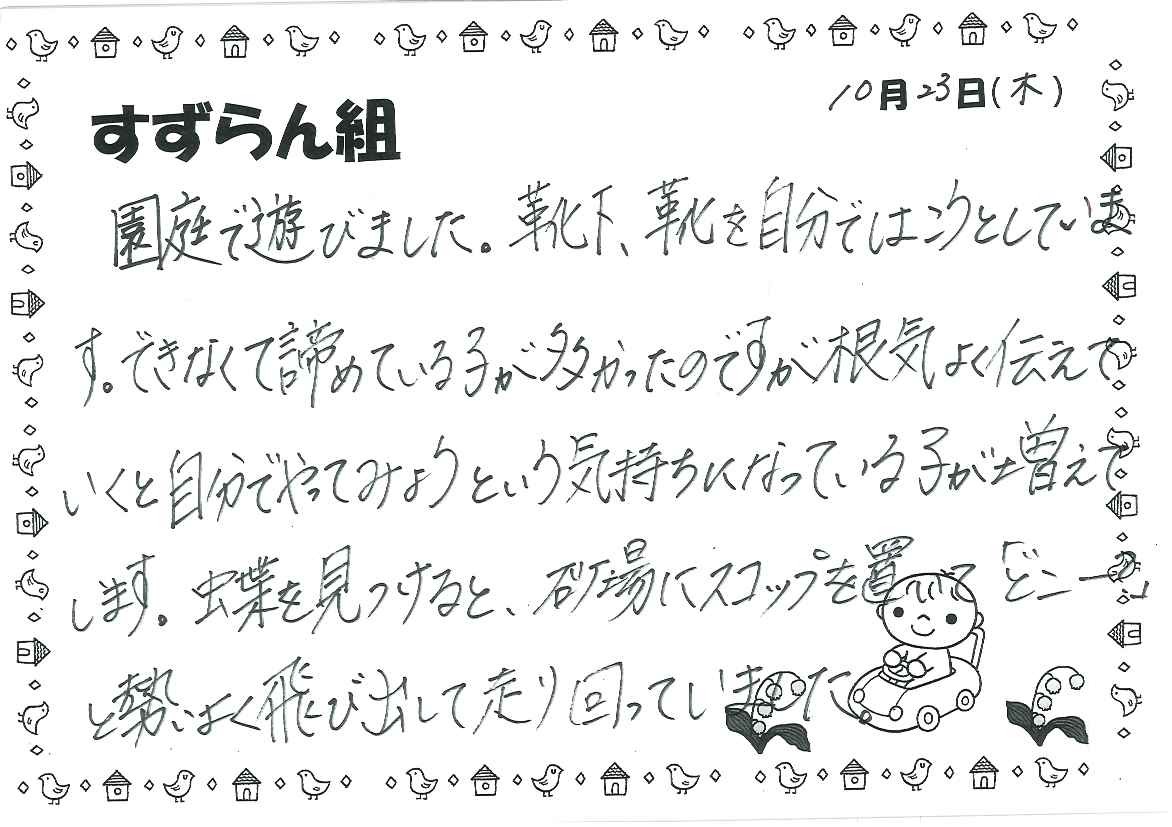 10月23日(木)
すずらん組
園庭で遊びました。靴下、靴を自分ではこうとしていま
す。できなくて諦めている子が多かったのですが根気よく伝えて
いくと自分でやってみようという気持ちになっている子が増えて
します。虫蝶を見つけると、砂場にスコップを置いて「どこー?」
と勢いよく飛び出して走り回っていました。